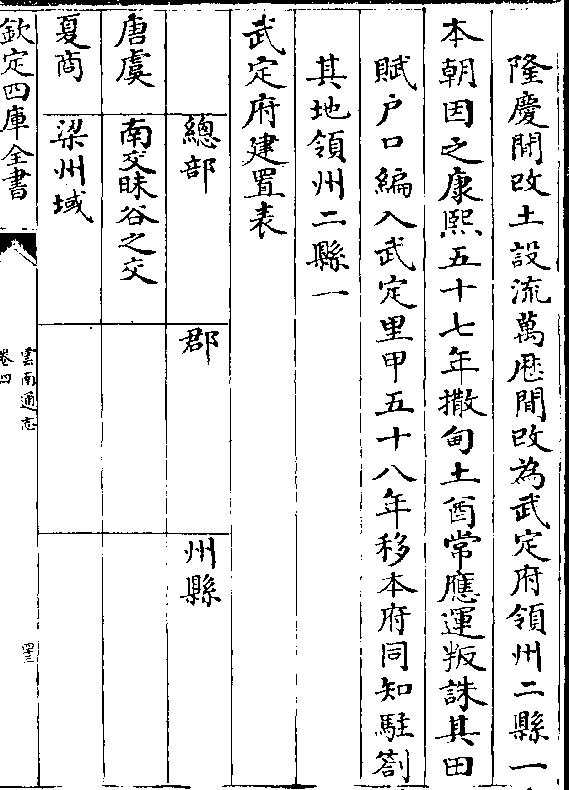 隆慶間改土設流萬厯間改為武定府領州二縣一
本朝因之康熙五十七年撒甸土酋常應運叛誅其田
賦户口編入武定里甲五十八年移本府同知駐劄
其地領州二縣一
武定府建置表
總部 郡 州縣
唐虞 南交昧谷之交
夏商 梁州域
欽定四庫全書
雲南通志
卷四
四三